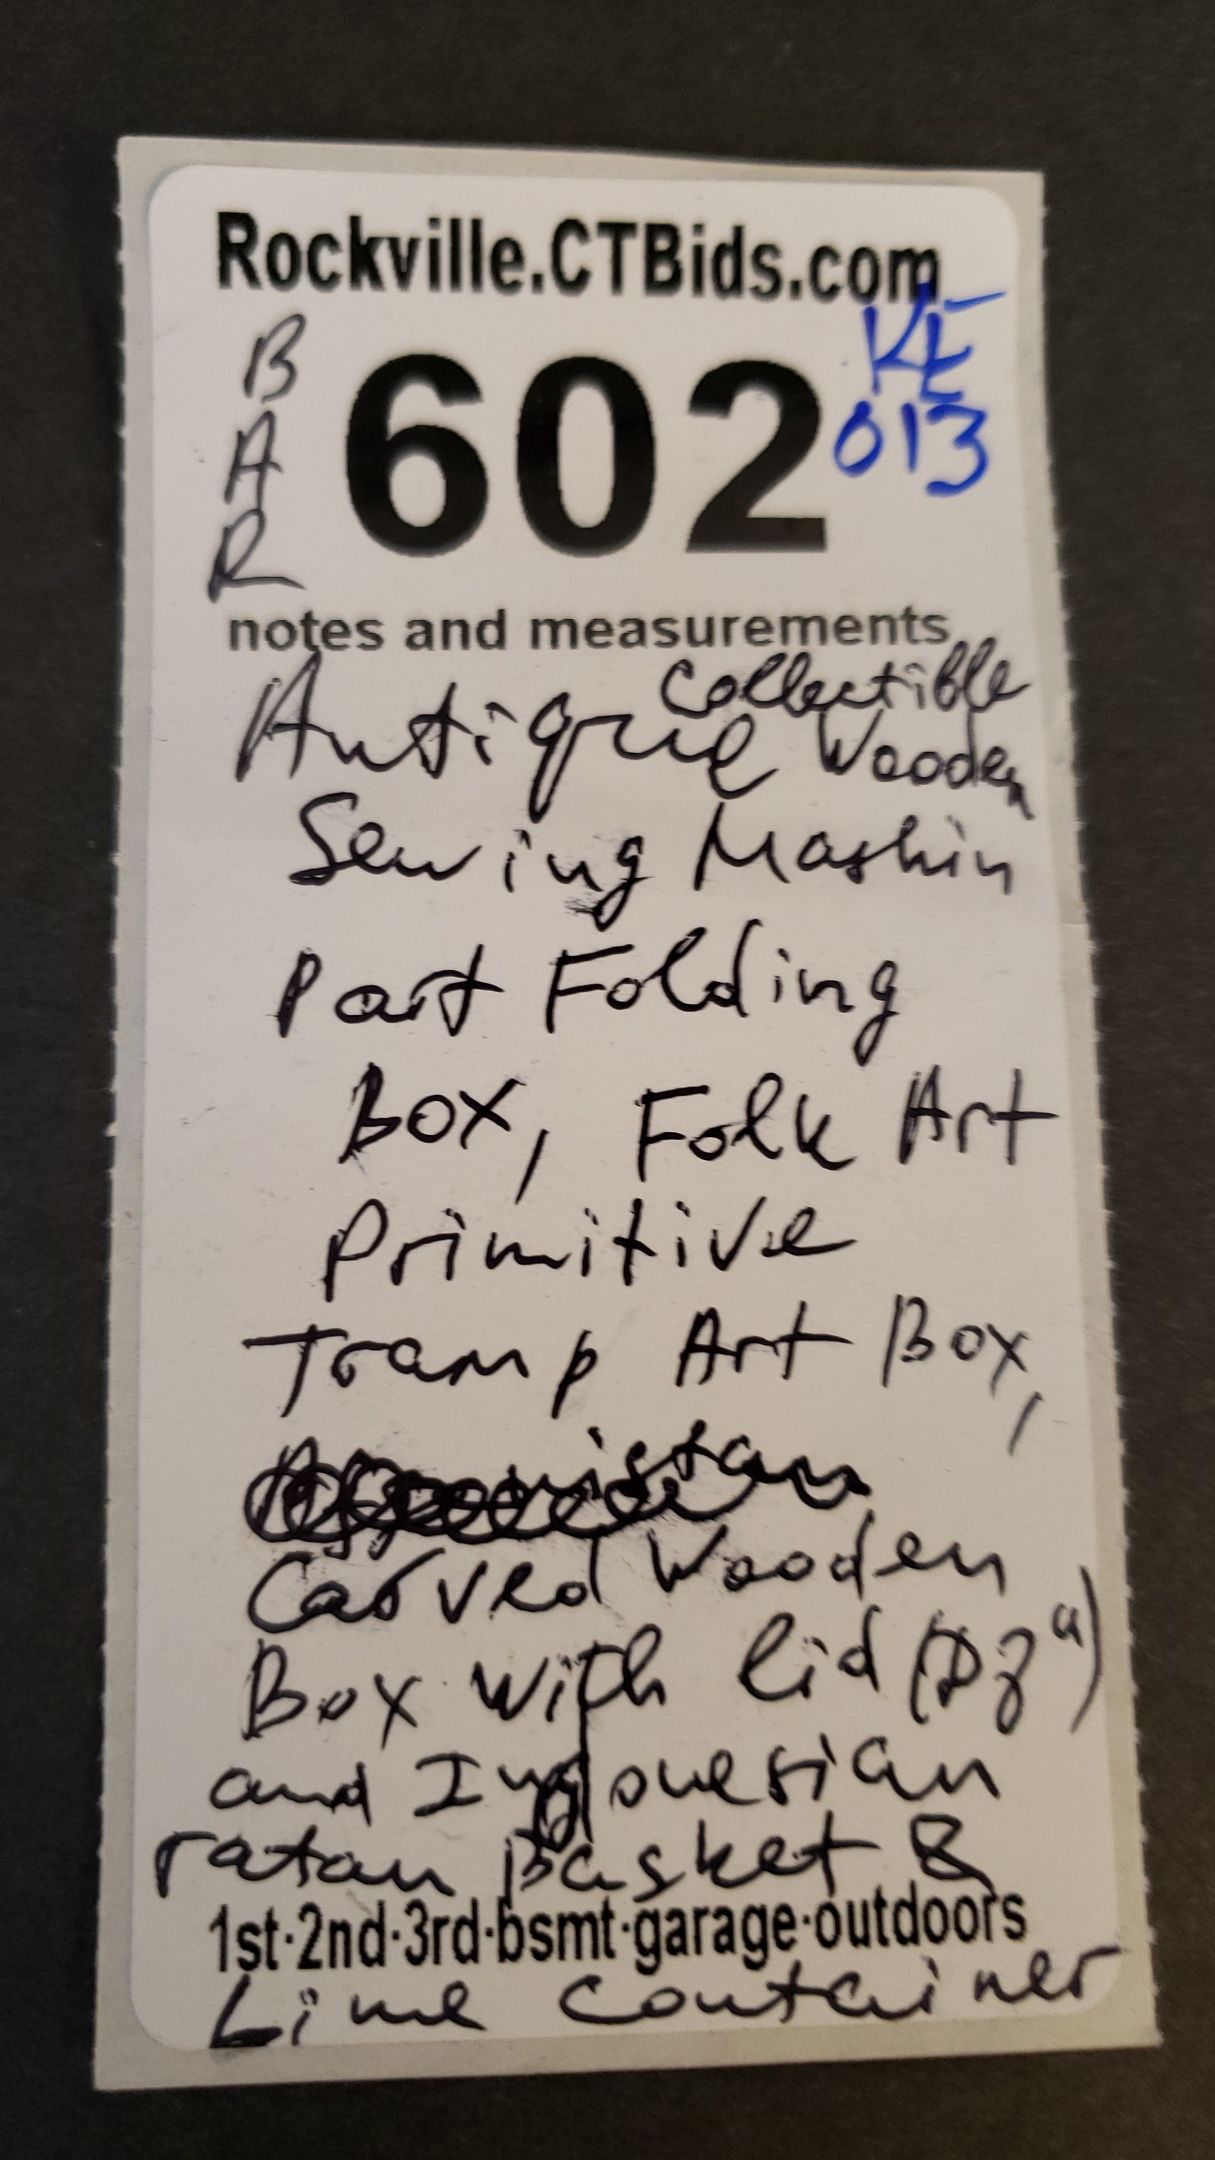 Rockville.CTBids.com
BAR
602
KE
013
notes and measurements
Collectible
Antique Wooden
Sewing Mashin
Part Folding
Box, Folk Art
Primitive
Tramp Art Box,
Carved Wooden
Box with lid
and Indonesian
ratan Basket &
1st·2nd·3rd·bsmt·garage·outdoors
Lime Container